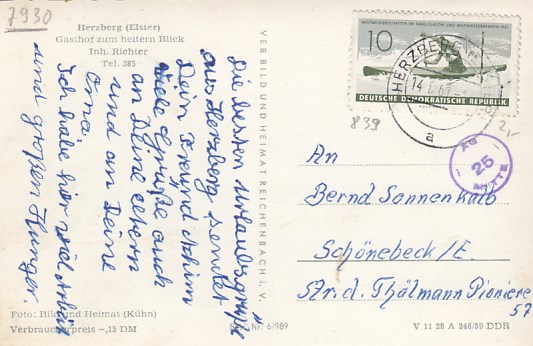 7930
Herzberg (Elster)
Gasthof zum heitern Blick
Inh. Richter
Tel. 385
Die besten Urlaubsgrüße
aus Herzberg sendet
Dein Freund Achim
Viele Grüße auch
an Deine Eltern
und an Deine
Oma.
Ich habe hier viel
und großen Hunger.
Foto: Bild und Heimat (Kühn)
Verbraucherpreis -,15 DM
VEB BILD UND HEIMAT REICHENBACH i. V.
Best.-Nr. 6/989
10
DEUTSCHE DEMOKRATISCHE REPUBLIK
HERZBERG
a
839
2,-
25
MITTE
An
Bernd Sonnenkalb
Schönebeck/E.
Str. d. Thälmann Pioniere
57
V 11 28 A 246/59 DDR